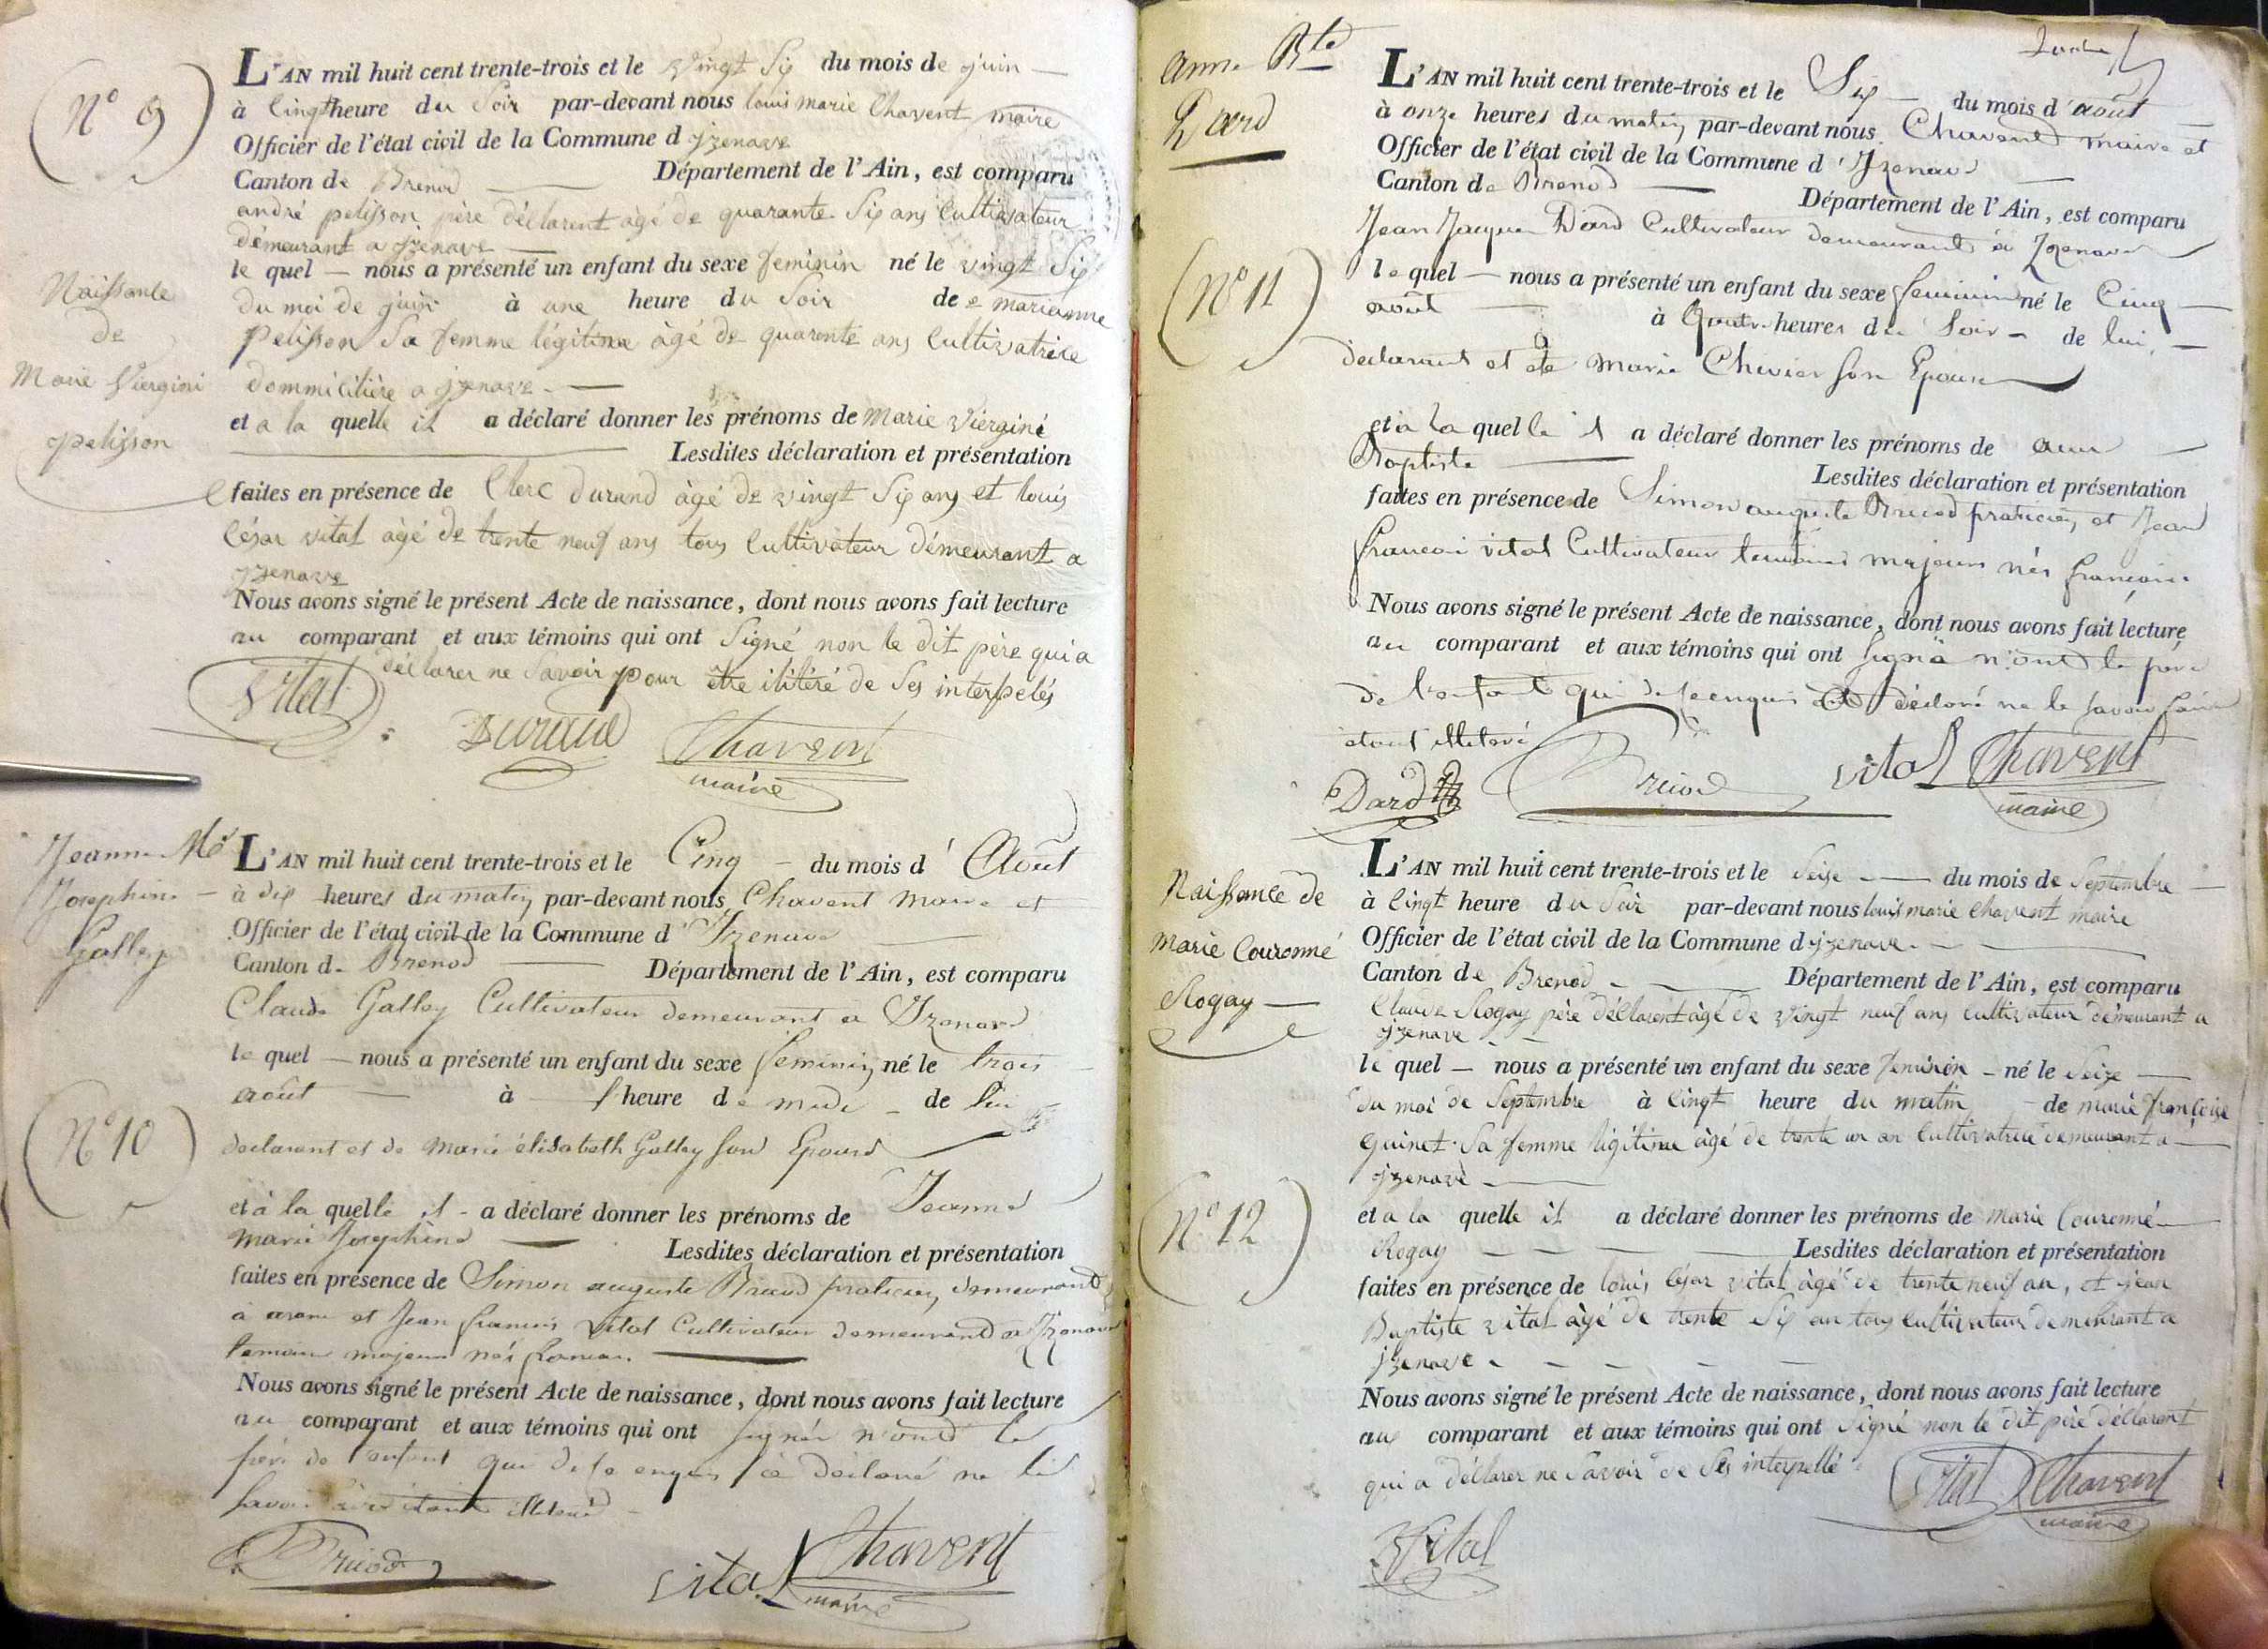 (N° 9)
L'AN mil huit cent trente-trois et le vingt Six du mois de juin
à Cinqt heure du Soir par-devant nous louis marie Chavent maire
Officier de l'état civil de la Commune d jzenave
Canton de Brenod Département de l'Ain, est comparu
andré pelisson père déclarent àgé de quarante Six ans Cultivateur
démeurant a jzenave
le quel nous a présenté un enfant du sexe feminin né le vingt Six
du moi de juin à une heure du Soir de marianne
pelisson Sa femme légitime àgé de quarente ans Cultivatrice
dommicilière a jzenave
et a la quelle il a déclaré donner les prénoms de Marie Vierginé
Lesdites déclaration et présentation
faites en présence de Clerc Durand àgé de vingt Six ans et louis
César vital àgé de trente neuf ans tous Cultivateur démeurant a
jzenave
Nous avons signé le présent Acte de naissance, dont nous avons fait lecture
au comparant et aux témoins qui ont Signé non le dit père qui a
déclarer ne Savoir pour être ilitéré de Ses interpelés
Naissance
de
Marie Viergini
pelisson
Vital Durand Chavent
maire
Jeanne Mie
Josephine
Galley
(N° 10)
L'AN mil huit cent trente-trois et le Cinq du mois d' Août
à dix heures du matin par-devant nous Chavent maire et
Officier de l'état civil de la Commune d' Izenave
Canton de Brenod Département de l'Ain, est comparu
Claude Galley Cultivateur demeurant a Izenave
le quel nous a présenté un enfant du sexe feminin né le trois
août à l'heure de midi de lui
declarant et de Marie élisabeth Galley son Epouse
et à la quelle il a déclaré donner les prénoms de Jeanne
Marie Josephine Lesdites déclaration et présentation
faites en présence de Simon auguste Bruod praticien demeurant
à aranc et Jean francois Vital Cultivateur demeurant a Izenave
temoins majeurs nés francais.
Nous avons signé le présent Acte de naissance, dont nous avons fait lecture
au comparant et aux témoins qui ont signés non le
père de l'enfant qui de ce enquis a déclaré ne le
savoir faire étant illiteré
Bruod vital Chavent
maire
Anne Bte
Dard
(N° 11)
L'AN mil huit cent trente-trois et le Six du mois d' août
à onze heures du matin par-devant nous Chavent maire et
Officier de l'état civil de la Commune d' Izenave
Canton de Brenod Département de l'Ain, est comparu
Jean Jacques Dard Cultivateur demeurant à Izenave
le quel nous a présenté un enfant du sexe feminin né le Cinq
août à Quatre heures du Soir de lui
declarant et de Marie Chevier son Epouse
et à la quelle il a déclaré donner les prénoms de anne
Baptiste Lesdites déclaration et présentation
faites en présence de Simon auguste Bruod praticien et Jean
francois vital Cultivateur temoins majeurs nés francais.
Nous avons signé le présent Acte de naissance, dont nous avons fait lecture
au comparant et aux témoins qui ont signé non le père
de l'enfant qui de ce enquis a déclaré ne le savoir faire
etant illiteré
Dard Bruod vital Chavent
maire
Naissance de
Marie Couronné
Rogay
(N° 12)
L'AN mil huit cent trente-trois et le Seize du mois de Septembre
à Cinqt heure du Soir par-devant nous louis marie Chavent maire
Officier de l'état civil de la Commune d jzenave
Canton de Brenod Département de l'Ain, est comparu
Claude Rogay père déclarent àgé de vingt neuf ans cultivateur démeurant a
jzenave
le quel nous a présenté un enfant du sexe feminin né le Seize
du moi de Septembre à Cinqt heure du matin de marie françoise
Guinet Sa femme légitime àgé de trente un an Cultivatrice demeurant a
jzenave
et a la quelle il a déclaré donner les prénoms de marie Couronné
Rogay Lesdites déclaration et présentation
faites en présence de louis César vital àgé de trente neuf an, et jean
Baptiste vital àgé de trente Six an tous cultivateur demeurant a
jzenave
Nous avons signé le présent Acte de naissance, dont nous avons fait lecture
au comparant et aux témoins qui ont Signé non le dit père déclarent
qui a déclarer ne Savoir de Ses interpellé
Vital Chavent
maire
Vital